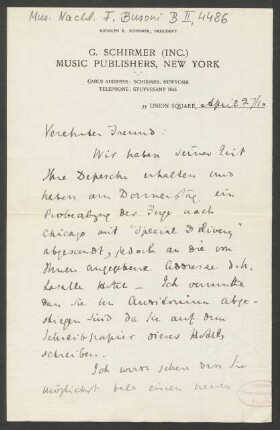 Mus. Nachl. F. Busoni B II, 4486
RUDOLPH E. SCHIRMER, PRESIDENT
G. SCHIRMER (INC.)
MUSIC PUBLISHERS, NEW YORK
CABLE ADDRESS: SCHIRMER, NEWYORK
TELEPHONE: STUYVESANT
UNION SQUARE, April 27/10
Verehrter Freund:
Wir haben seiner Zeit
Ihre Depesche erhalten und
haben am Donnerstag ein
Probeabzug der Fuge nach
Chicago mit "Special Delivery"
abgesandt, jedoch an die von
Ihnen angegebene Addresse d.h.
Lasalle Hotel – Ich vermuthe
dass Sie im Auditorium abge-
stiegen sind da Sie auf dem
Schreibpapier dieses Hotels
schreiben.
Ich werde sehen dass Sie
möglichst bald einen neuen